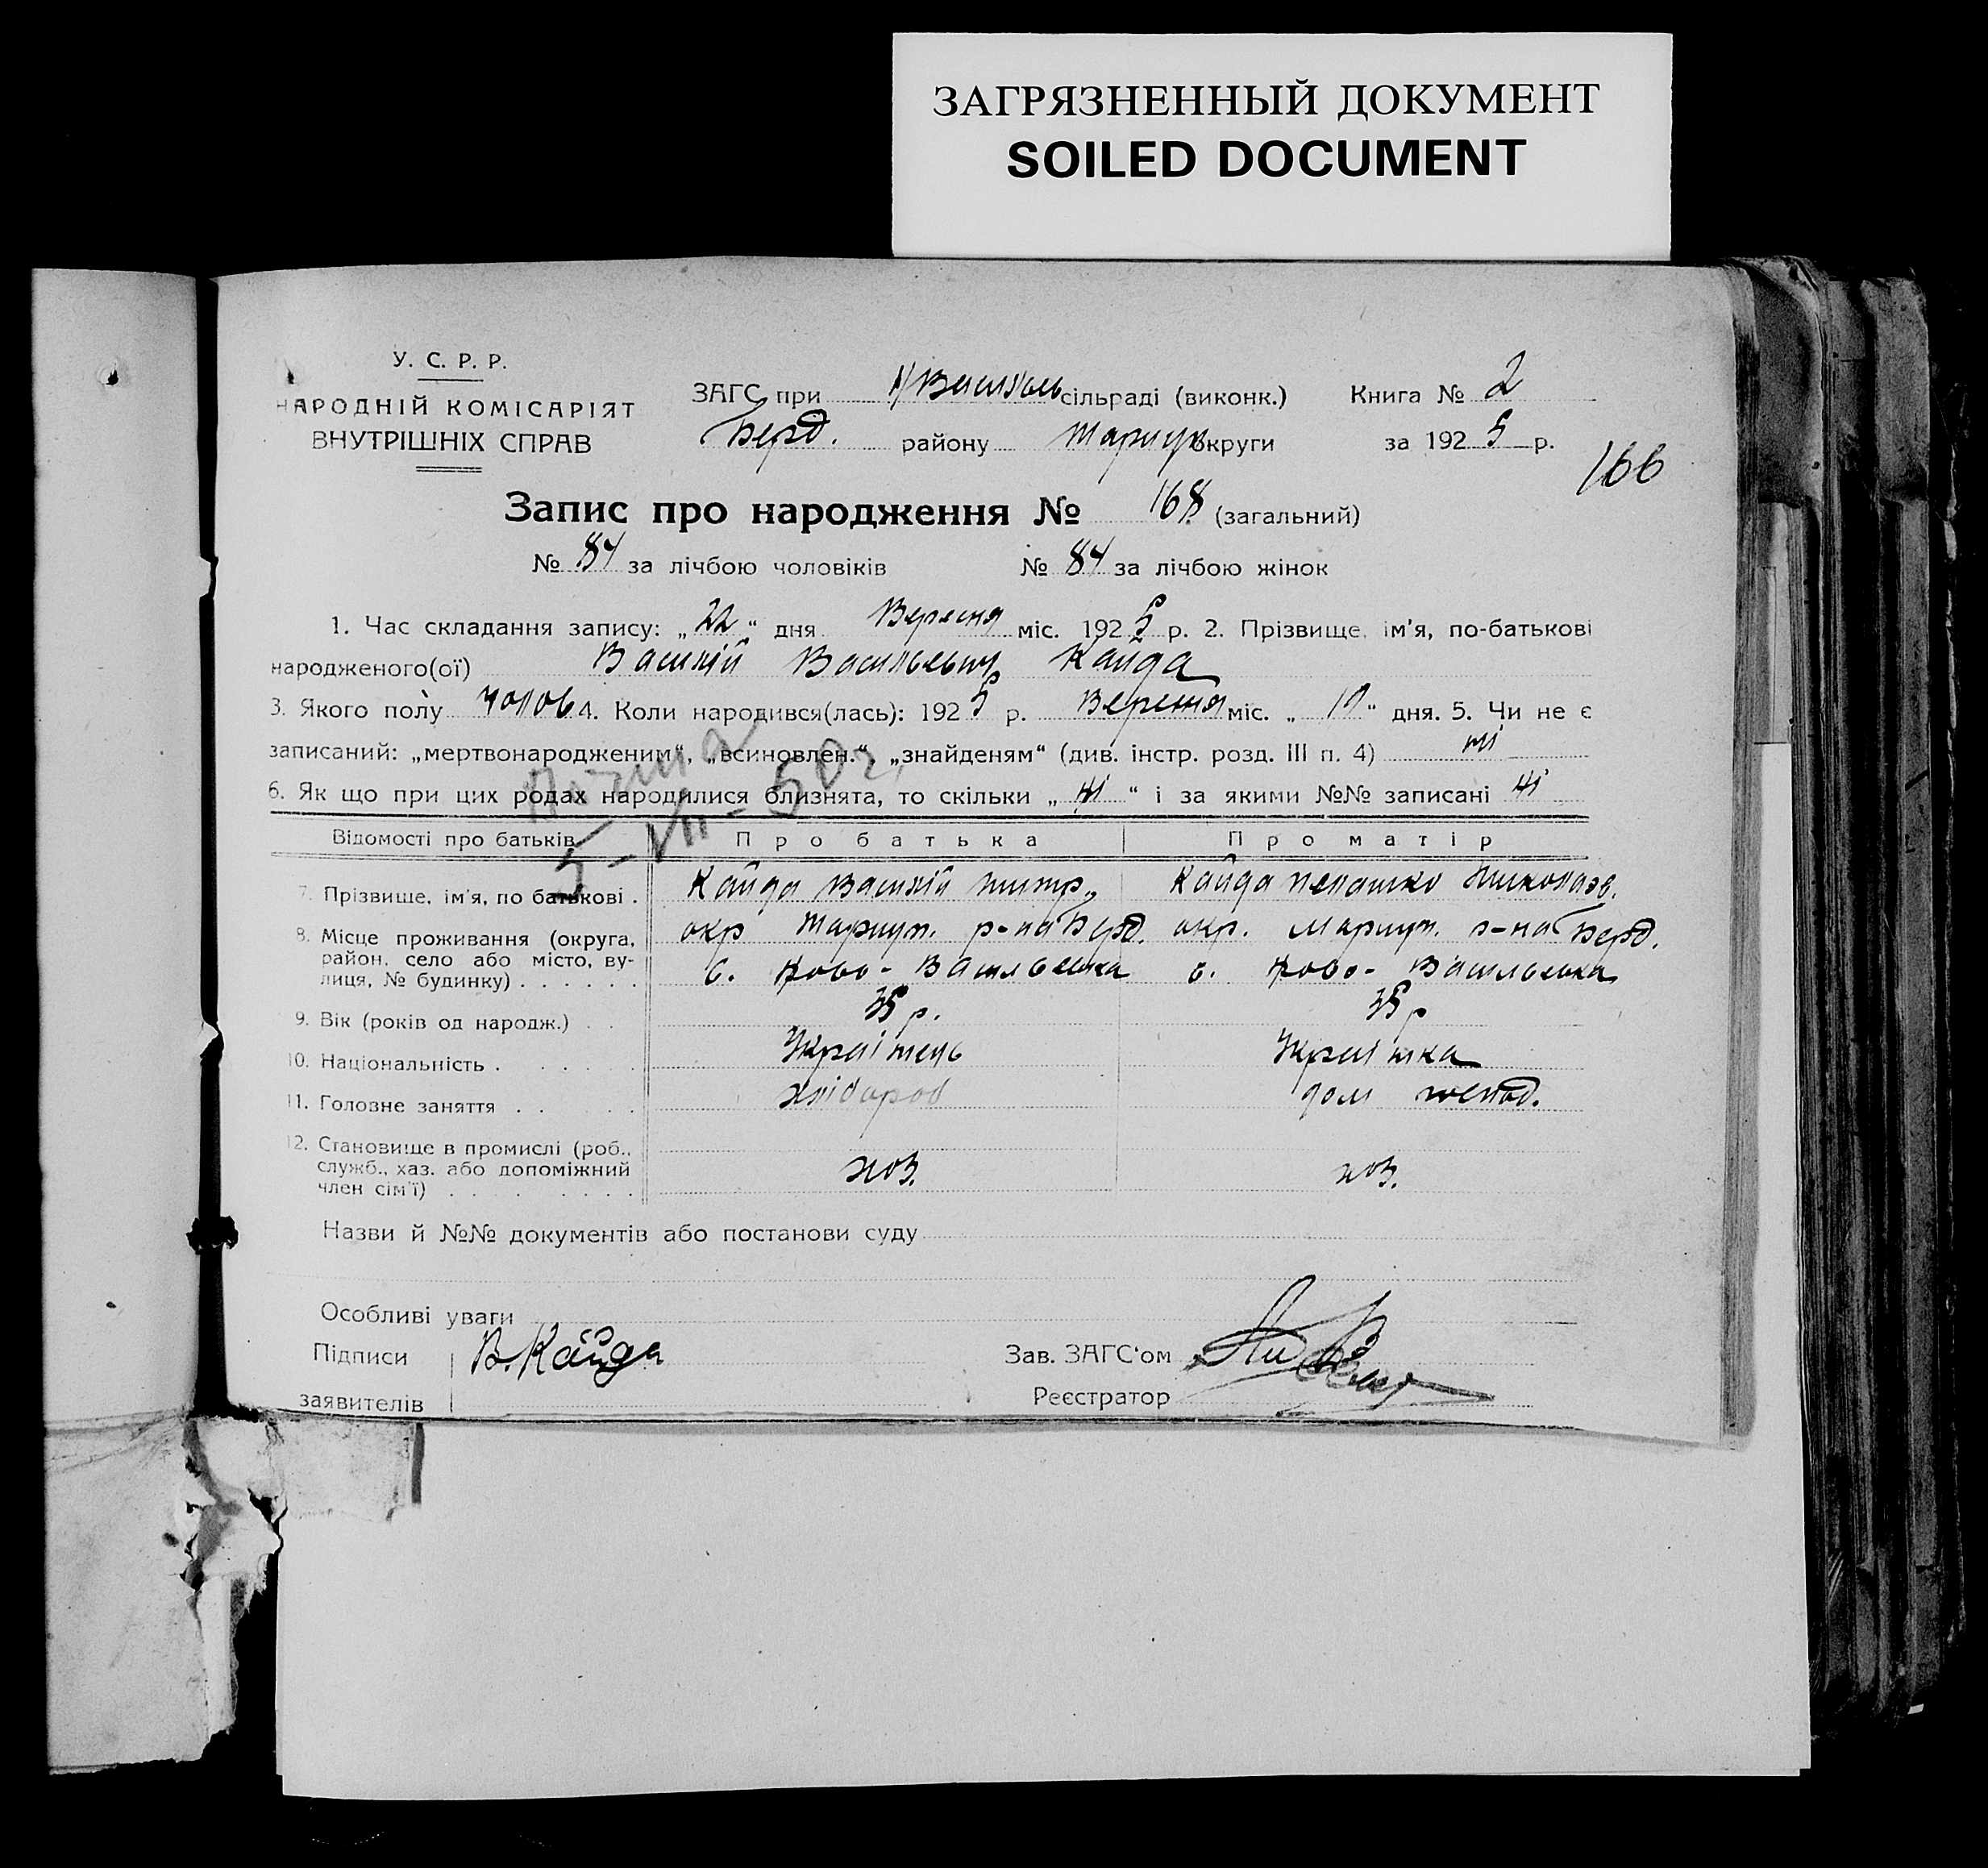 ЗАГРЯЗНЕННЫЙ ДОКУМЕНТ
SOILED DOCUMENT
У. С. Р. Р.
НАРОДНІЙ КОМІСАРІЯТ
ВНУТРІШНІХ СПРАВ
ЗАГС при Н/Василь сільраді (виконк.) Книга № 2
Берд. району Маріуп округи за 1925 р.
166
Запис про народження № 168 (загальний)
№ 84 за лічбою чоловіків № 84 за лічбою жінок
1. Час складання запису: „22“ дня Вересня міс. 1925 р. 2. Прізвище, ім'я, по-батькові
народженого(ої) Василій Васильевич Кайда
3. Якого полу чолов 4. Коли народився(лась): 1925 р. Вересня міс. „10“ дня. 5. Чи не є
записаний: „мертвонародженим“, „всиновлен.“, „знайденям“ (див. інстр. розд. III п. 4) ні
6. Як що при цих родах народилися близнята, то скільки „ні“ і за якими №№ записані ні
5-VII-50 г.
Відомості про батьків Про батька Про матір
7. Прізвище, ім'я, по батькові . Кайда Василій Кайда Николаев.
8. Місце проживання (округа, окр Мариуп. р-на Берд. окр. Мариуп. р-на Берд.
район, село або місто, ву-
лиця, № будинку) . . . . . . с. Ново-Васильевка с. Ново-Васильевка
9. Вік (років од народж.) . . 35 р. 35 р
10. Національність . . . . . . Українець Українка
11. Головне заняття . . . . . хлібороб дом господ.
12. Становище в промислі (роб.,
служб., хаз. або допоміжний хоз. хоз.
член сім'ї) . . . . . . . .
Назви й №№ документів або постанови суду
Особливі уваги
Підписи В. Кайда Зав. ЗАГС'ом
заявителів Реєстратор